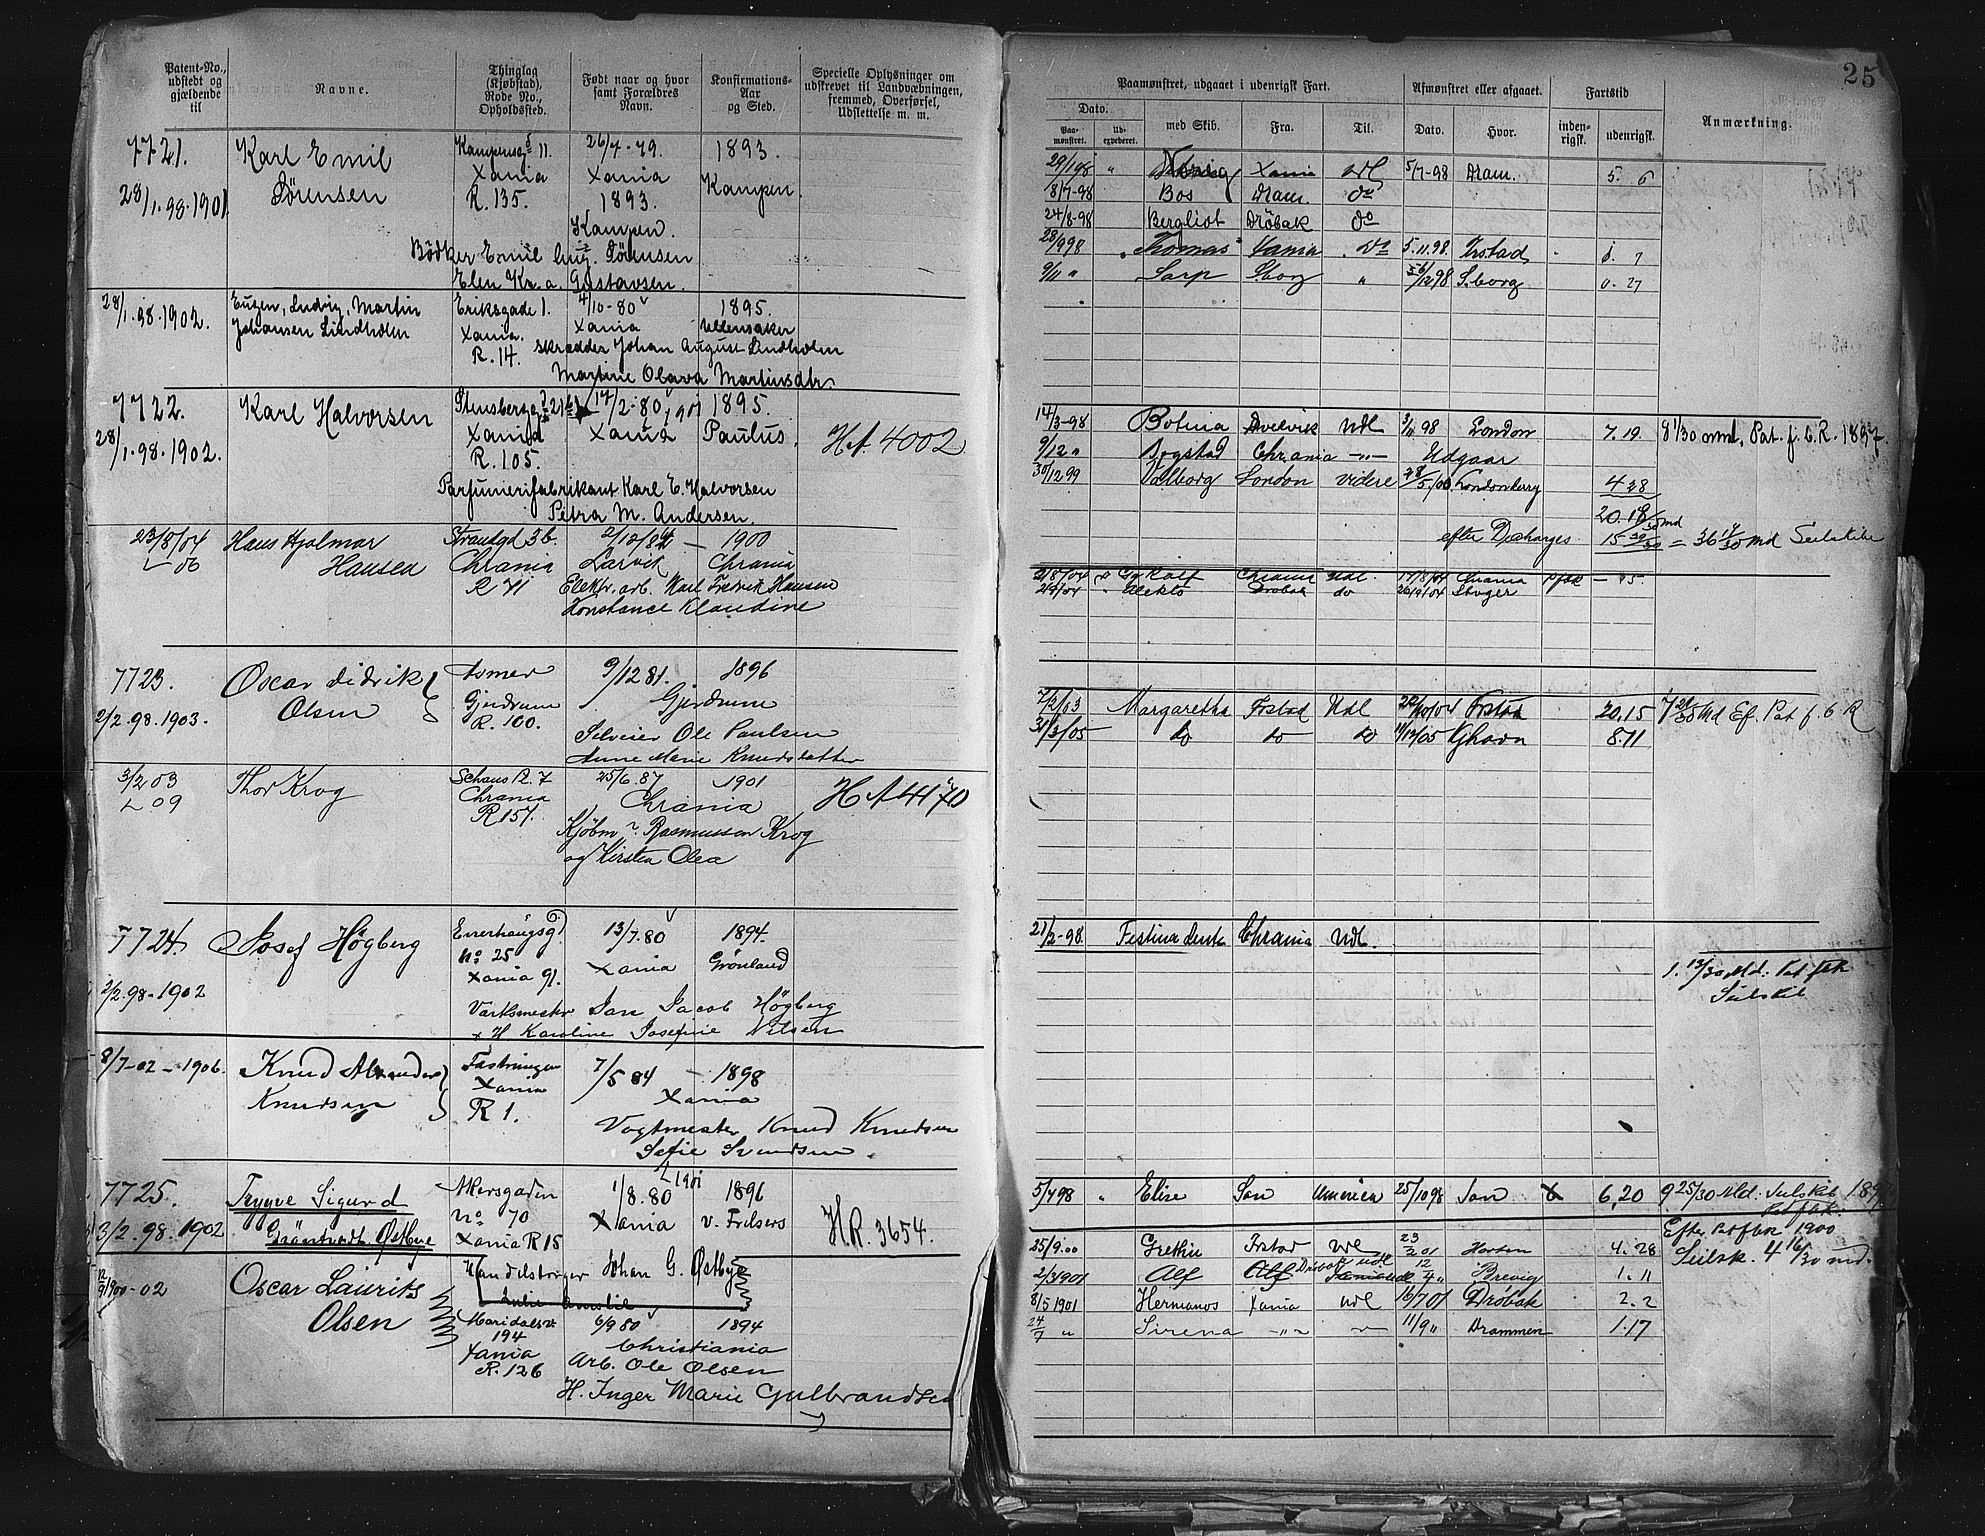 Patent-No., udstedt og gjældende til
Navne.
Thinglag (Kjøbstad), Rode No., Opholdssted.
Født naar og hvor samt Forældres Navn.
Konfirmations-Aar og Sted.
Specielle Oplysninger om udskrevet til Landvæbningen, fremmed, Overførsel, Udslettelse m. m.
7721.
Karl Emil
Sörensen
28/1.98-1901
11.
Xania
R. 135.
26/7-79.
Xania
1893.
Kampen.
1893.
Kampen.
Bödker Emil Aug. Sörensen
Elen Kr. a. Gustavsen.
28/1.98-1902.
Eugen, Ludvig, Martin
Johansen Lindholm
Eriksgade 1.
Xania.
R. 14.
4/10-80
Xania
1895.
Ullensaker
Skrædder Johan August Lindholm
Martine Olava Martinsdtr.
7722.
28/1.98-1902.
Karl Halvorsen
Xania
R. 105.
14/2-80
Xania
1895.
Paulus.
H.A. 4002
Parfumerifabrikant Karl E. Halvorsen
Petra M. Andersen.
23/8/04
06
Hans Hjalmar
Hansen
Strandgd 36.
Chrania
R 71
2/12/84
Larvik
1900
Chrania
Elektr. arb. Karl Fredrik Hansen
Konstance Klaudine
7723.
2/2.98-1903.
Oscar Didrik
Olsen
Asmer
Gjerdrum
R. 100.
9/12 81.
1896
Gjerdrum
Selveier Ole Paulsen
Anne Marie Knudsdatter
3/2 03
09
Thor Krog
Schous Pl. 7
Chrania
R 157.
25/6.87
1901
Chrania
H A 4170
Kjöbm. Rasmussen Krog
og Kirsten Olea
7724.
2/2.98-1902
Josef Högberg
Enerhaugsg.
No 25
Xania 91.
13/7.80
Xania
1894.
Grönland
Jan Jacob Högberg
H Karoline Josefine Nilsen
8/7-02-1906.
Knud
Knudsen
Xania
R 1.
7/5 84
1898
Xania
Vogtmester Knud Knudsen
Sofie Svendsen.
7725.
3/2.98.1902
Trygve Sigurd
Östbye
Akersgaden
No 70
Xania R 15
1/8.80
1901
Xania
1896
v. Frelsers
H.R. 3654.
Handelsborger Johan G. Östbye
Julie Amalie
12/9 1900-02
Oscar Laurits
Olsen
Maridalsv.
194
Xania
R. 126
6/9 80
1894
Christiania
Arb. Ole Olsen
H. Inger Marie Gulbrandsen
25
Paamønstret, udgaaet i udenrigsk Fart.
Afmønstret eller afgaaet.
Fartstid
Anmærkning.
Dato.
Paa-mønstret.
Ud-expederet.
med Skib.
Fra.
Til.
Dato.
Hvor.
inden-rigsk.
udenrigsk.
29/1 98 " Xania Udl 5/7-98 Dram. 5. 6
8/7-98 Bos Dram. do
24/8-98 Bergliot Dröbak do
28/9 98 Thomas Xania do 5.11.98 Frstad 7
9/11 " Sarp Sborg " 98 Sborg 0. 27
14/3-98 Botnia Svelvik Udl 98 London 7. 19. 8 1/30 mnd, Pat. f. b. R. 1897.
9/12 " Bogstad Chrania -"- Udgaar
30/12 99 Valborg London videre 28/5/00 Londonderry 4 28
20. 18/30 md
efter Decharges 15 29/30 = 36 17/30 md Seilskibe
04 Chrania Udl. 17/8/04 Chrania
04 Elekto Dröbak do 04
7/2/03 Margaretha Frstad Udl 04 Frstad 20.15 md Ef. Pat f. b R
31/3/05 do do do 05 Ghavn 8.11
21/2-98. Festina lente Chrania Udl.
1. 13/30 Md: Pat fbR
Seilskib
5/7 98 " Elise Son America 25/10 98 Son 6, 20 9 25/30 Md: Seilskib
Pat fbk.
Efter Pat fbk 1900
Seilsk. 4 16/30 md.
25/9.00 Grethe Frstad Udl 01 Horten 4. 28
2/3 1901 Alf Dröbak Udl Brevig 1. 11
8/5 1901 Hermanos Xania Udl 16/7 01 Dröbak 2. 2
24/7 " Sirena -"- 11/9 " Drammen 1. 17